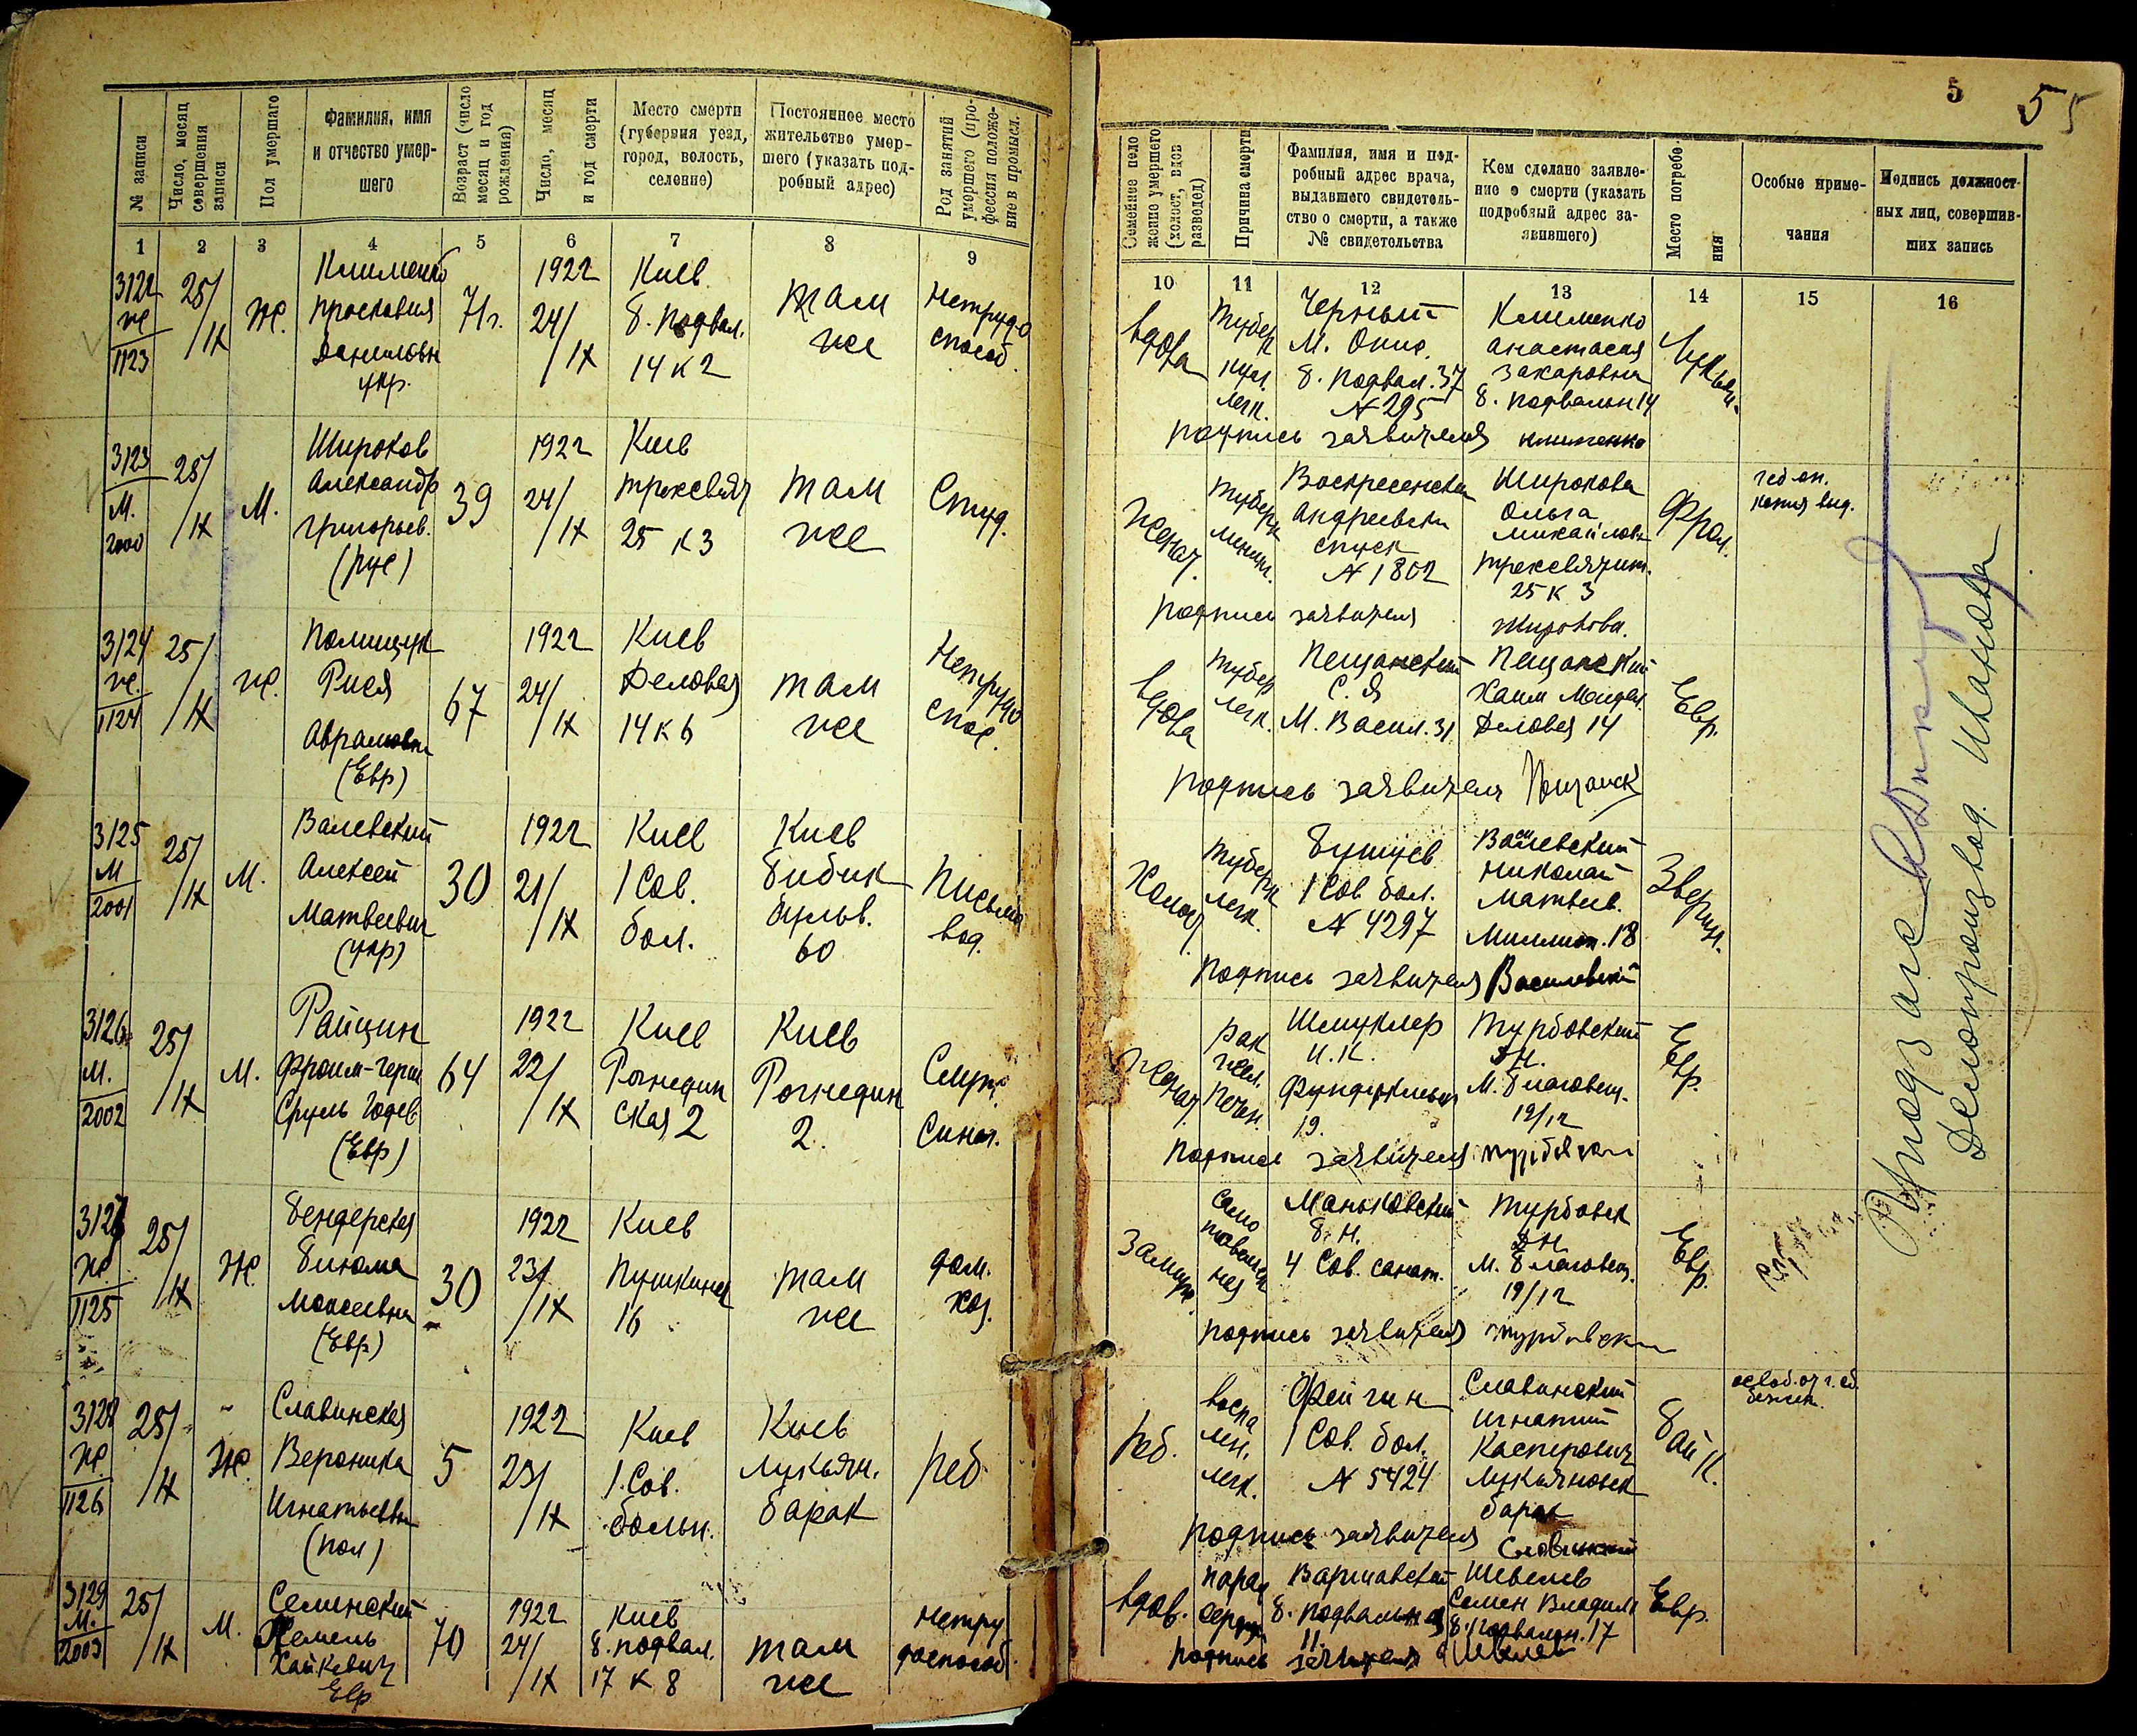 5
55
№ записи
Число, месяц
совершения
записи
Пол умершаго
Фамилия, имя
и отчество умер-
шего
Возраст (число
месяц и год
рождения)
Число, месяц
и год смерти
Место смерти
(губерния уезд,
город, волость,
селение)
Постоянное место
жительство умер-
шего (указать под-
робный адрес)
Род занятий
умершего (про-
фессия положе-
ние в промысл.
Семейное поло
жение умершего
(холост, вдов
разведед)
Причина смерти
Фамилия, имя и под-
робный адрес врача,
выдавшего свидетель-
ство о смерти, а также
№ свидетельства
Кем сделано заявле-
ние о смерти (указать
подробный адрес за-
явившего)
Место погребе-
ния
Особые приме-
чания
Подпись должност-
ных лиц, совершив-
ших запись
1 2 3 4 5 6 7 8 9
10 11 12 13 14 15 16
3122
ж
1123
25/
IX
Ж.
Клименко
Просковия
Даниловн
укр.
71 г.
1922
24/
IX
Киев
Б. Подвал.
14 к 2
там
же
Нетрудо
способ.
вдова
Тубер
кул.
легк.
Черный
М. Онис.
Б. Подвал. 37
N 295
Клименко
Анастасия
Захаровна
Б. Подвальн 14
Лукьян.
подпись заявителя Клименко
3123
М.
2000
25/
IX
М.
Широков
Александр
Григорьев.
(рус)
39
1922
24/
IX
Киев
Трехсвят
25 к 3
там
же
Студ.
женат.
туберк
менинг.
Воскресенская
Андреевский
спуск
N 1802
Широкова
Ольга
Михайловн
Трехсвятит.
25 к 3
Фрол.
копия выд.
Подпись заявителя
Широкова.
3124
ж.
1124
25/
IX
ж.
Полищук
Рися
Аврамовна
(Евр)
67
1922
24/
IX
Киев
Деловая
14 к 6
там
же
Нетрудо
спос.
вдова
тубер
легк.
Пещанский
С. Я
М. Васил. 31
Пещанский
Хаим
Деловая 14
Евр.
Подпись заявителя
3125
М
2001
25/
IX
М.
Валевский
Алексей
Матвеевич
(укр)
30
1922
21/
IX
Киев
1 Сов.
бол.
Киев
Бибик
бульв.
60
Письмо
вод.
Холост
туберк
легк.
1 Сов бол.
N 4297
Николай
Матвеев.
Миллион. 18
Зверин.
Подпись заявителя Василевский
3126
М.
2002
25/
IX
М.
Райцин
Фроим-Герш
Сруль
(Евр)
64
1922
22/
IX
Киев
Рогнедин
ская 2
Киев
Рогнедин
2.
Служ.
Синаг.
женат.
рак
печен.
Шмуклер
И. К.
Фундуклеев
19.
Турбовский
Д Н.
М. Благовещ.
19/12
Евр.
Подпись заявителя
3127
ж
1125
25/
IX
Ж.
Бендерская
Моисеевна
(Евр)
30
1922
23/
IX
Киев
Пушкинск
16
там
же
дом.
хоз.
Замуж.
Маньковский
Б. Н.
4 Сов. санат.
Турбовск
Д Н.
М. Благовещ.
19/12
Евр.
подпись заявителя Турбовски
3128
ж
1126
25/
IX
Ж.
Славинская
Вероника
Игнатьевна
(пол)
5
1922
23/
IX
Киев
1 Сов.
больн.
Киев
Лукьян.
барак
реб
реб.
воспа
лен.
легк.
Фейгин
1 Сов. бол.
N 5424
Славинский
Игнатий
Каспирович
Лукьяновск
барак
Байк.
Подпись заявителя
3129
М.
2003
25/
IX
М.
Селинский
Хаймович
Евр
70
1922
24/
IX
Киев
Б. подвал.
17 к 8
там
же
нетру
доспособ.
вдов.
парал
сердца
Варшавский
Б. Подвальная
11.
Шевелев
Семен Владим
Б. Подвальн. 17
Евр.
подпись заявителя Шевелев
Делопроизвод. Иванова